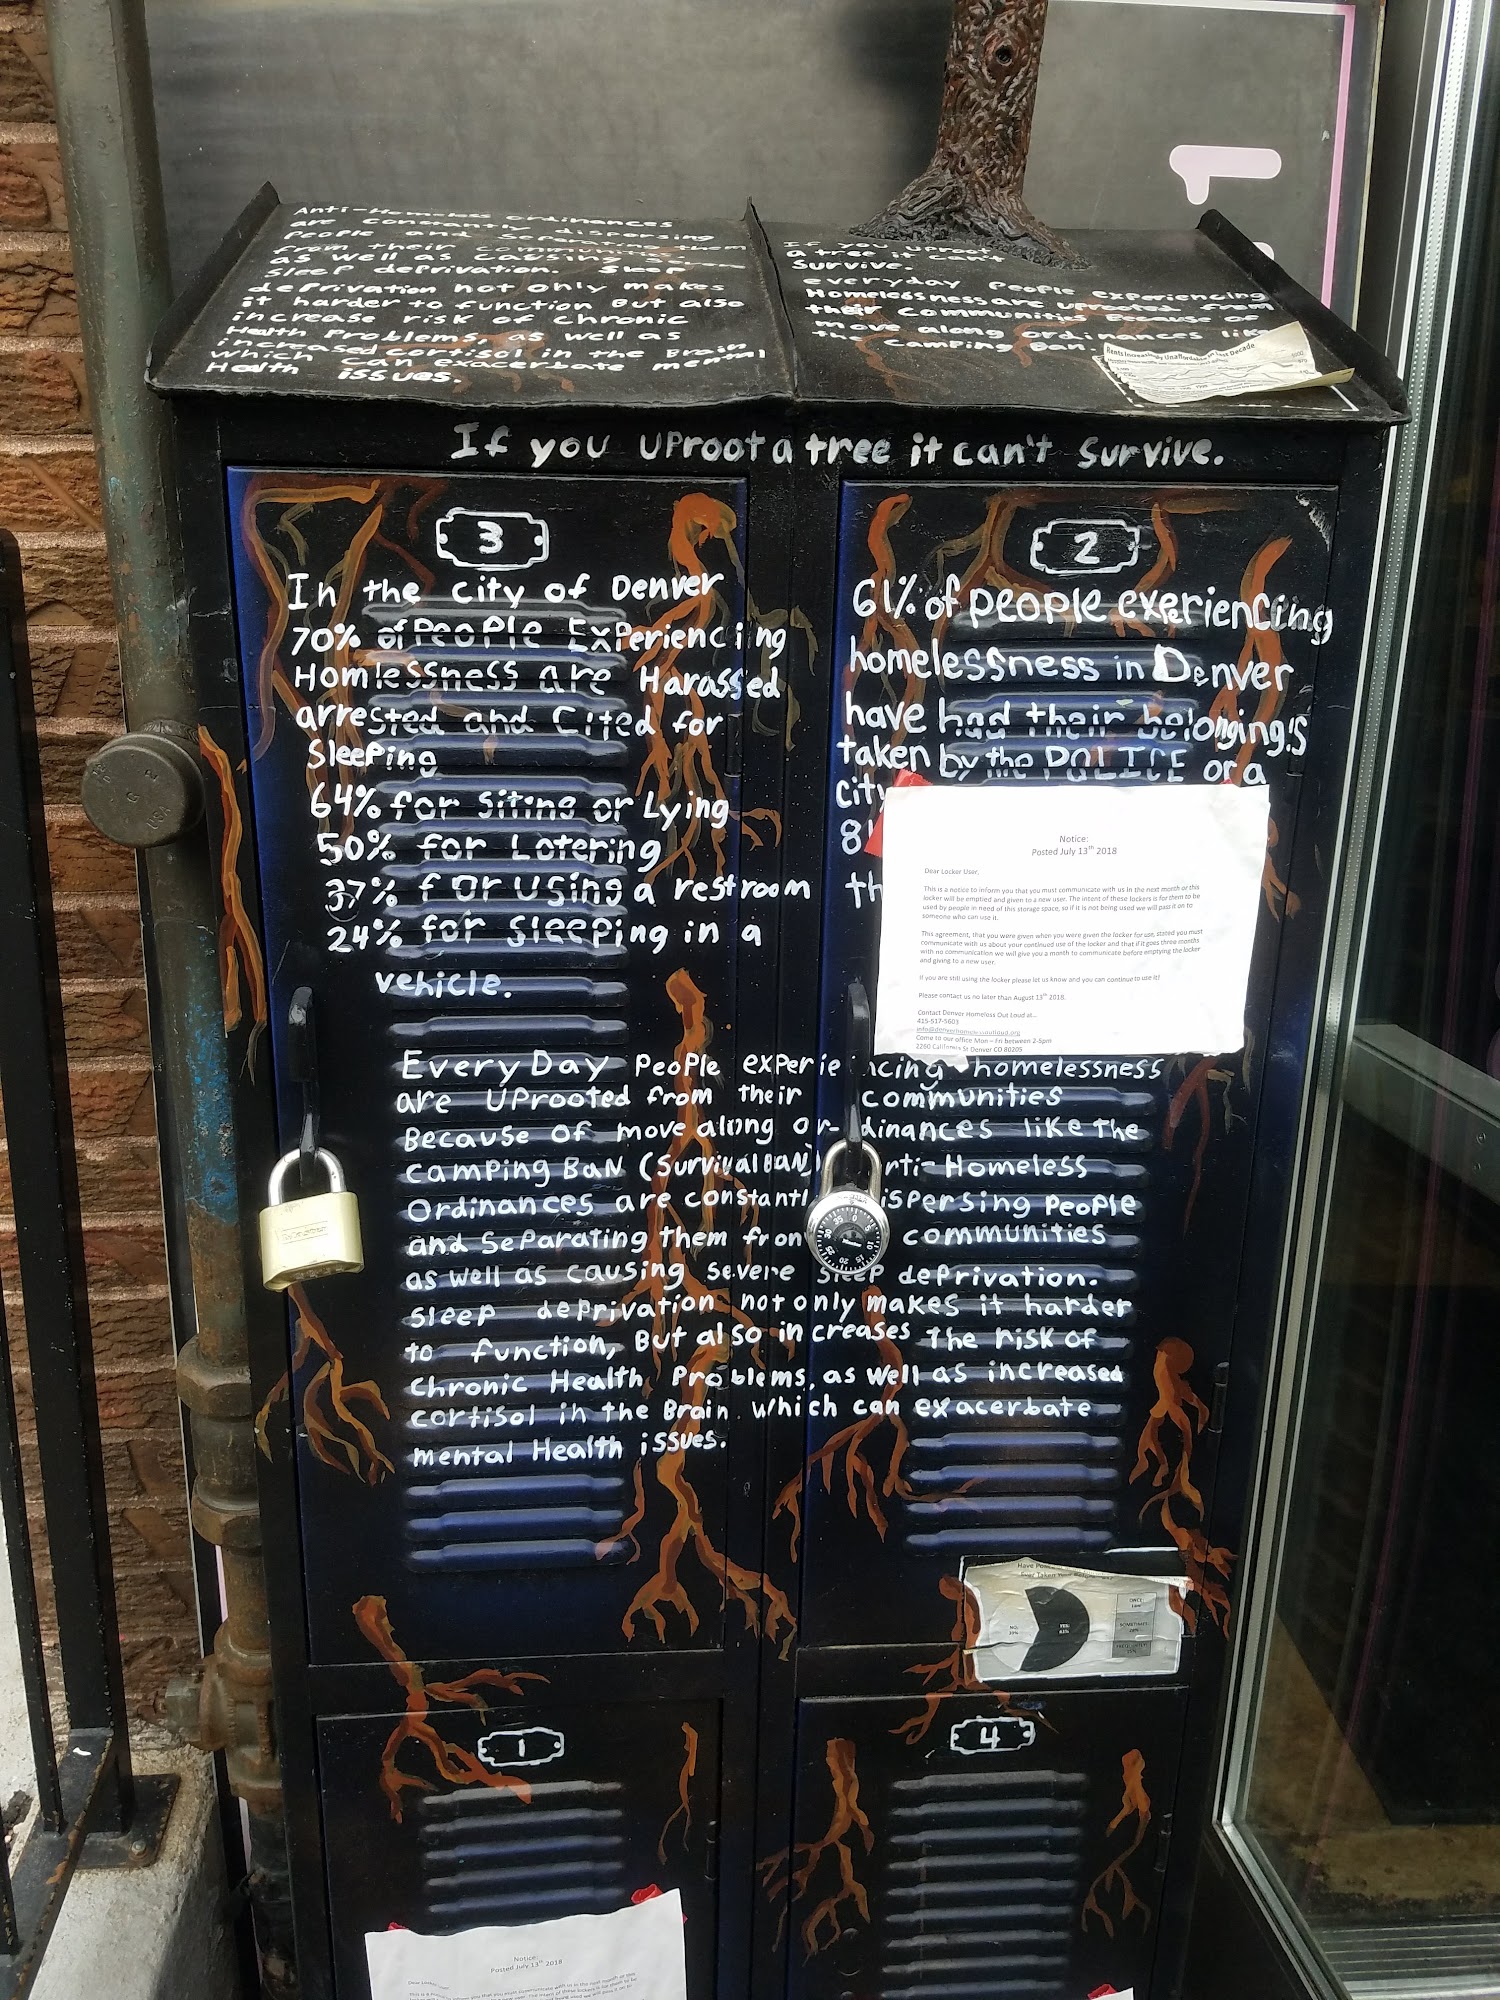 Anti-Homeless ordinances
are constantly dispersing
People and Separating them
from their communities
as well as causing severe
Sleep deprivation. Sleep
deprivation not only makes
it harder to function But also
increase risk of chronic
Health Problems, as well as
increased cortisol in the Brain
which can exacerbate mental
Health issues.
If you uproot
a tree it can't
survive.
everyday People experiencing
Homelessness are uprooted from
their communities Because of
move along ordinances like
the Camping Ban.
Rents Increasingly Unaffordable in Last Decade
If you uproot a tree it can't Survive.
3
In the city of Denver
70% of People Experiencing
Homlessness are Harassed
arrested and Cited for
Sleeping
64% for Siting or Lying
50% for Lotering
37% for using a restroom
24% for Sleeping in a
vehicle.
2
61% of people exeriencing
homelessness in Denver
have had their belonging's
taken by the POLICE or a
city
8
th
Notice:
Posted July 13th 2018
Dear Locker User,
This is a notice to inform you that you must communicate with us in the next month or this
locker will be emptied and given to a new user. The intent of these lockers is for them to be
used by people in need of this storage space, so if it is not being used we will pass it on to
someone who can use it.
This agreement, that you were given when you were given the locker for use, stated you must
communicate with us about your continued use of the locker and that if it goes three months
with no communication we will give you a month to communicate before emptying the locker
and giving to a new user.
If you are still using the locker please let us know and you can continue to use it!
Please contact us no later than August 13th 2018.
Contact Denver Homeless Out Loud at...
415-517-5603
info@denverhomelessoutloud.org
Come to our office Mon – Fri between 2-5pm
2260 California St Denver CO 80205
Every Day People experiencing homelessness
are Uprooted from their communities
Because of move along or-dinances like the
Camping Ban (Survival BaN) Anti-Homeless
Ordinances are constantl ispersing People
and Separating them from communities
as well as causing severe sleep deprivation.
Sleep deprivation not only makes it harder
to function, But also increases the risk of
Chronic Health Problems, as well as increased
cortisol in the Brain, which can exacerbate
mental Health issues.
Have Pol
Ever Taken Your
NO:
39%
YES:
61%
ONCE:
SOMETIMES:
FREQUENTLY:
1
4
Notice:
Posted July 13th 2018
Dear Locker User,